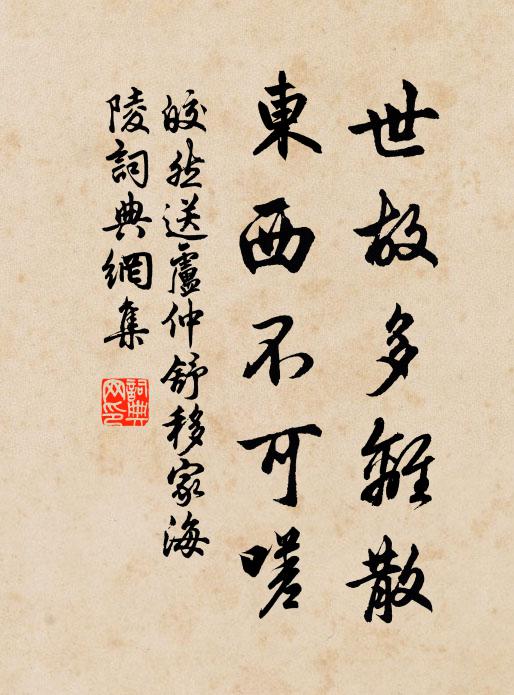 世故多離散
東西不可嗟
皎然送盧仲舒移家海
陵詞典網集
詞典
网印